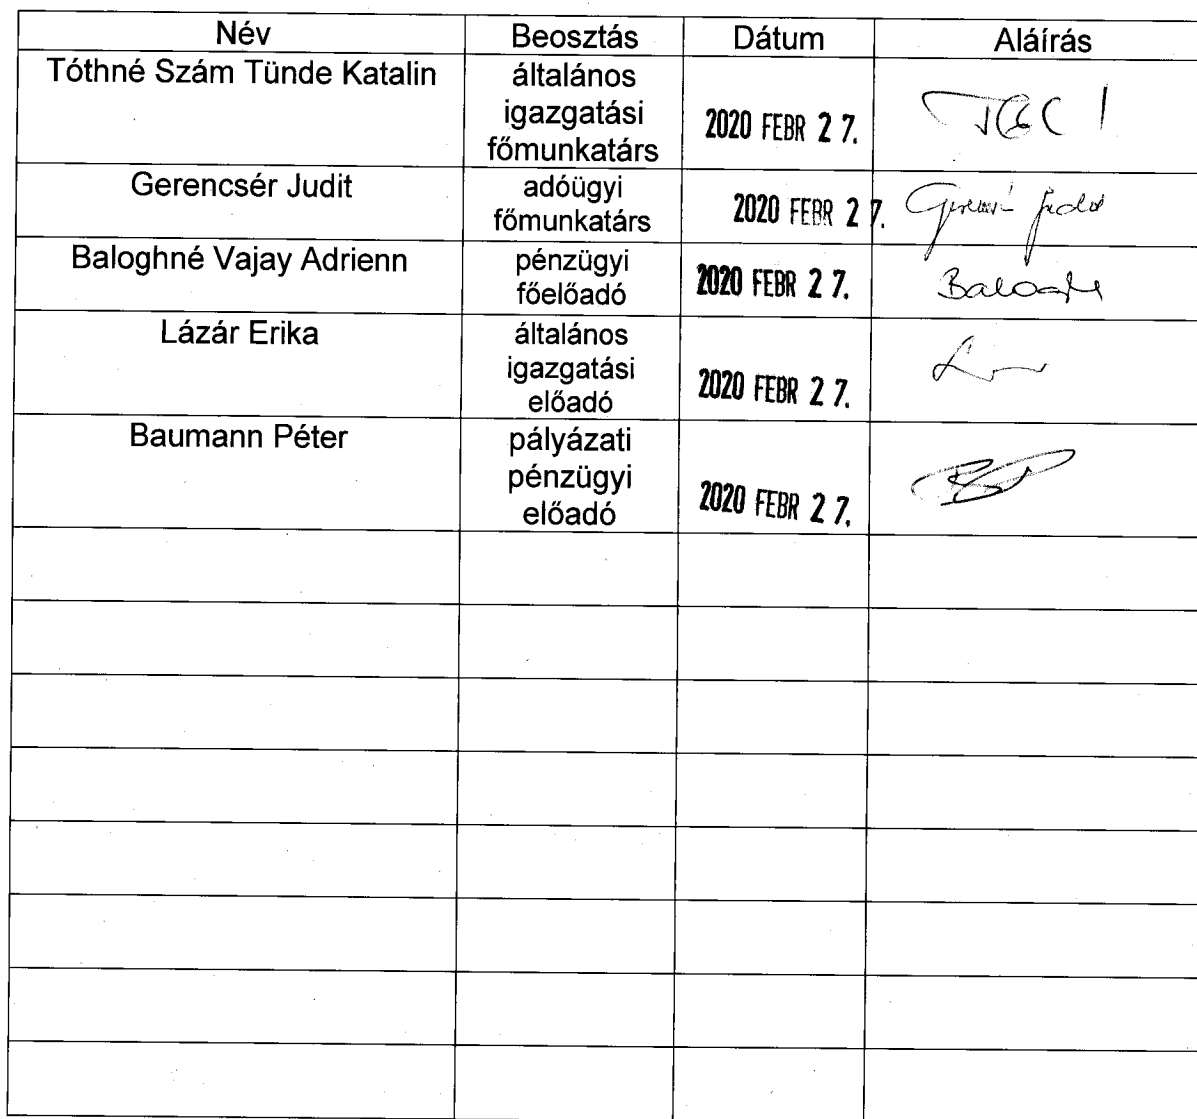 Név Beosztás Dátum Aláírás
Tóthné Szám Tünde Katalin általános
igazgatási
főmunkatárs 2020 FEBR 27.
Gerencsér Judit adóügyi
főmunkatárs 2020 FEBR 27.
Baloghné Vajay Adrienn pénzügyi
főelőadó 2020 FEBR 27.
Lázár Erika általános
igazgatási
előadó 2020 FEBR 27.
Baumann Péter pályázati
pénzügyi
előadó 2020 FEBR 27.